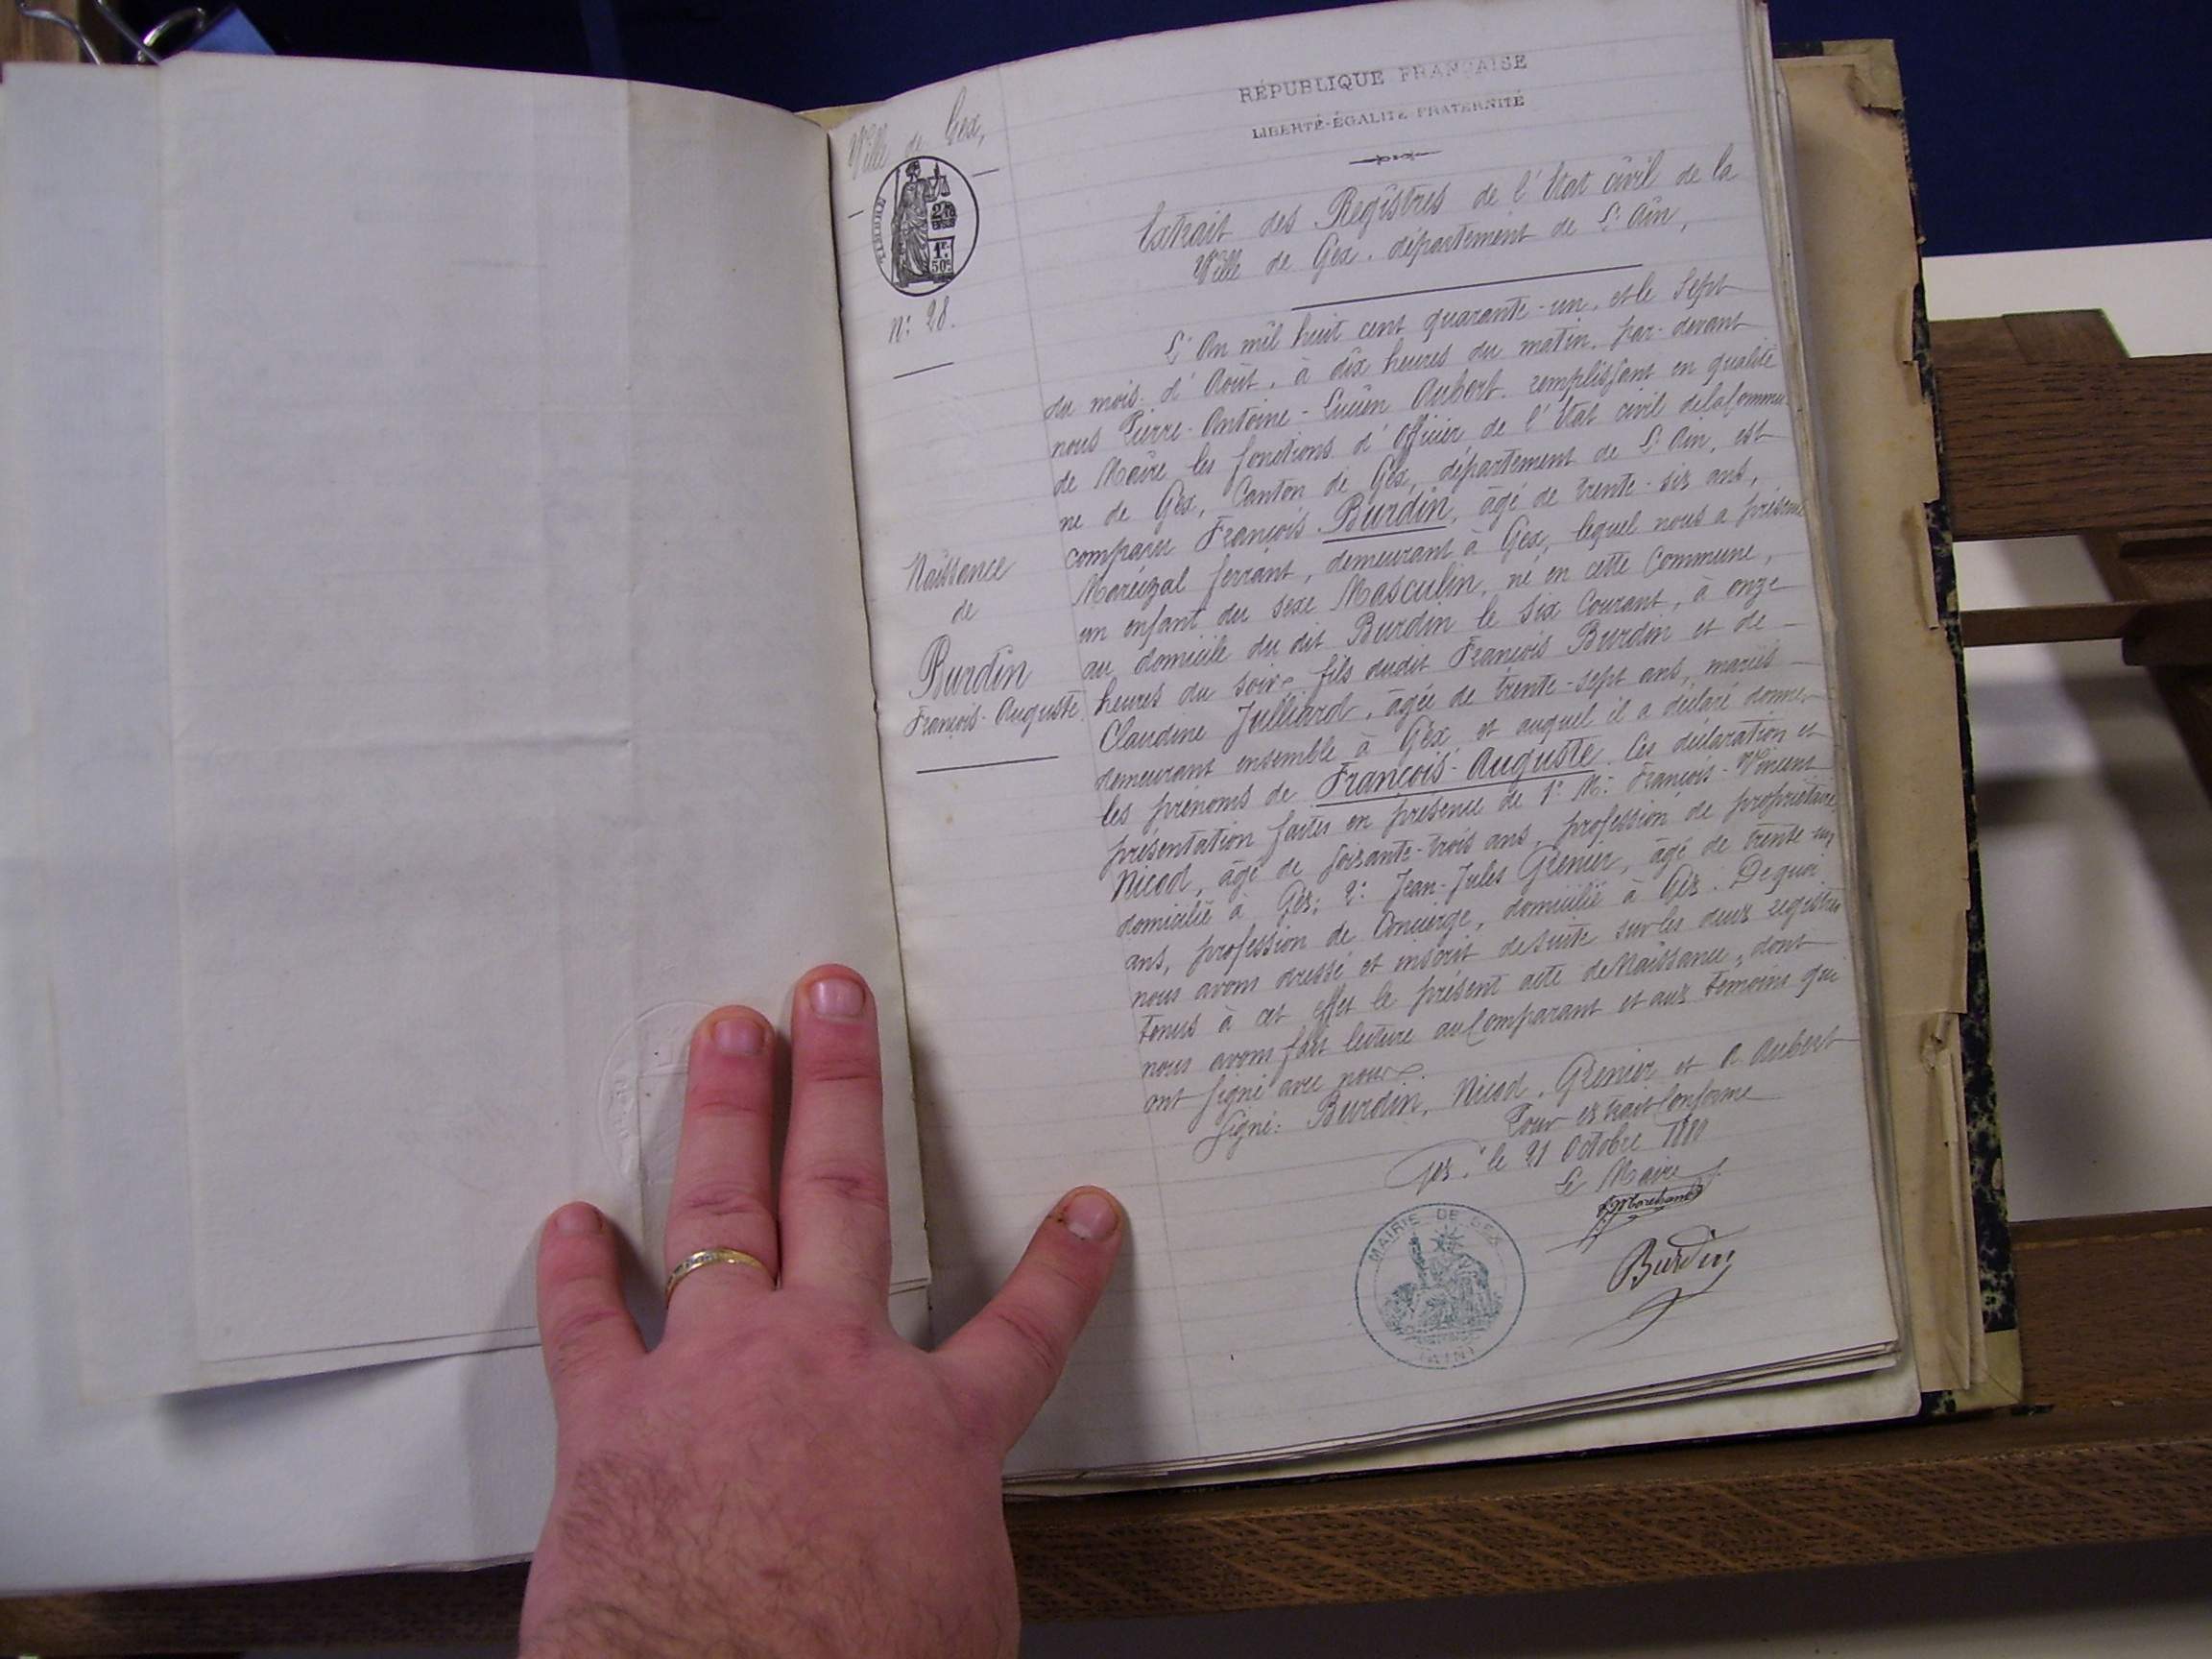 Ville de Gex,
TIMBRE
1F.
50c
N: 28.
Naissance
de
Burdin
François-Auguste.
RÉPUBLIQUE FRANÇAISE
LIBERTÉ-ÉGALITÉ FRATERNITÉ
Extrait des Registres de l'Etat civil de la
Ville de Gex, département de L'Ain,
L'An mil huit cent quarante-un, et le Sept
du mois d'Août, à dix heures du matin, par-devant
nous Pierre-Antoine-Lucien Aubert, remplissant en qualité
de Maire les fonctions d'Officier de l'Etat civil de la Commu-
ne de Gex, Canton de Gex, département de L'Ain, est
comparu François Burdin, âgé de trente-six ans,
Maréchal ferrant, demeurant à Gex, lequel nous a présenté
un enfant du sexe Masculin, né en cette Commune,
au domicile du dit Burdin le six Courant, à onze
heures du soir, fils dudit François Burdin et de
Claudine Julliard, âgée de trente-sept ans, mariés
demeurant ensemble à Gex et auquel il a déclaré donner
les prénoms de François-Auguste. Ces déclaration et
présentation faites en présence de 1° M. François-Vincent
Nicod, âgé de soixante-trois ans, profession de propriétaire
domicilié à Gex; 2: Jean-Jules Grenier, âgé de trente-un
ans, profession de Concierge, domicilié à Gex. De quoi
nous avons dressé et inscrit de suite sur les deux registres
tenus à cet effet le présent acte de Naissance, dont
nous avons fait lecture au Comparant et aux témoins qui
ont signé avec nous.
Signé: Burdin, Nicod, Grenier et A. Aubert
Pour extrait Conforme
Gex, le 21 Octobre 1880
Le Maire
Marchand
Burdin
MAIRIE DE GEX
(AIN)